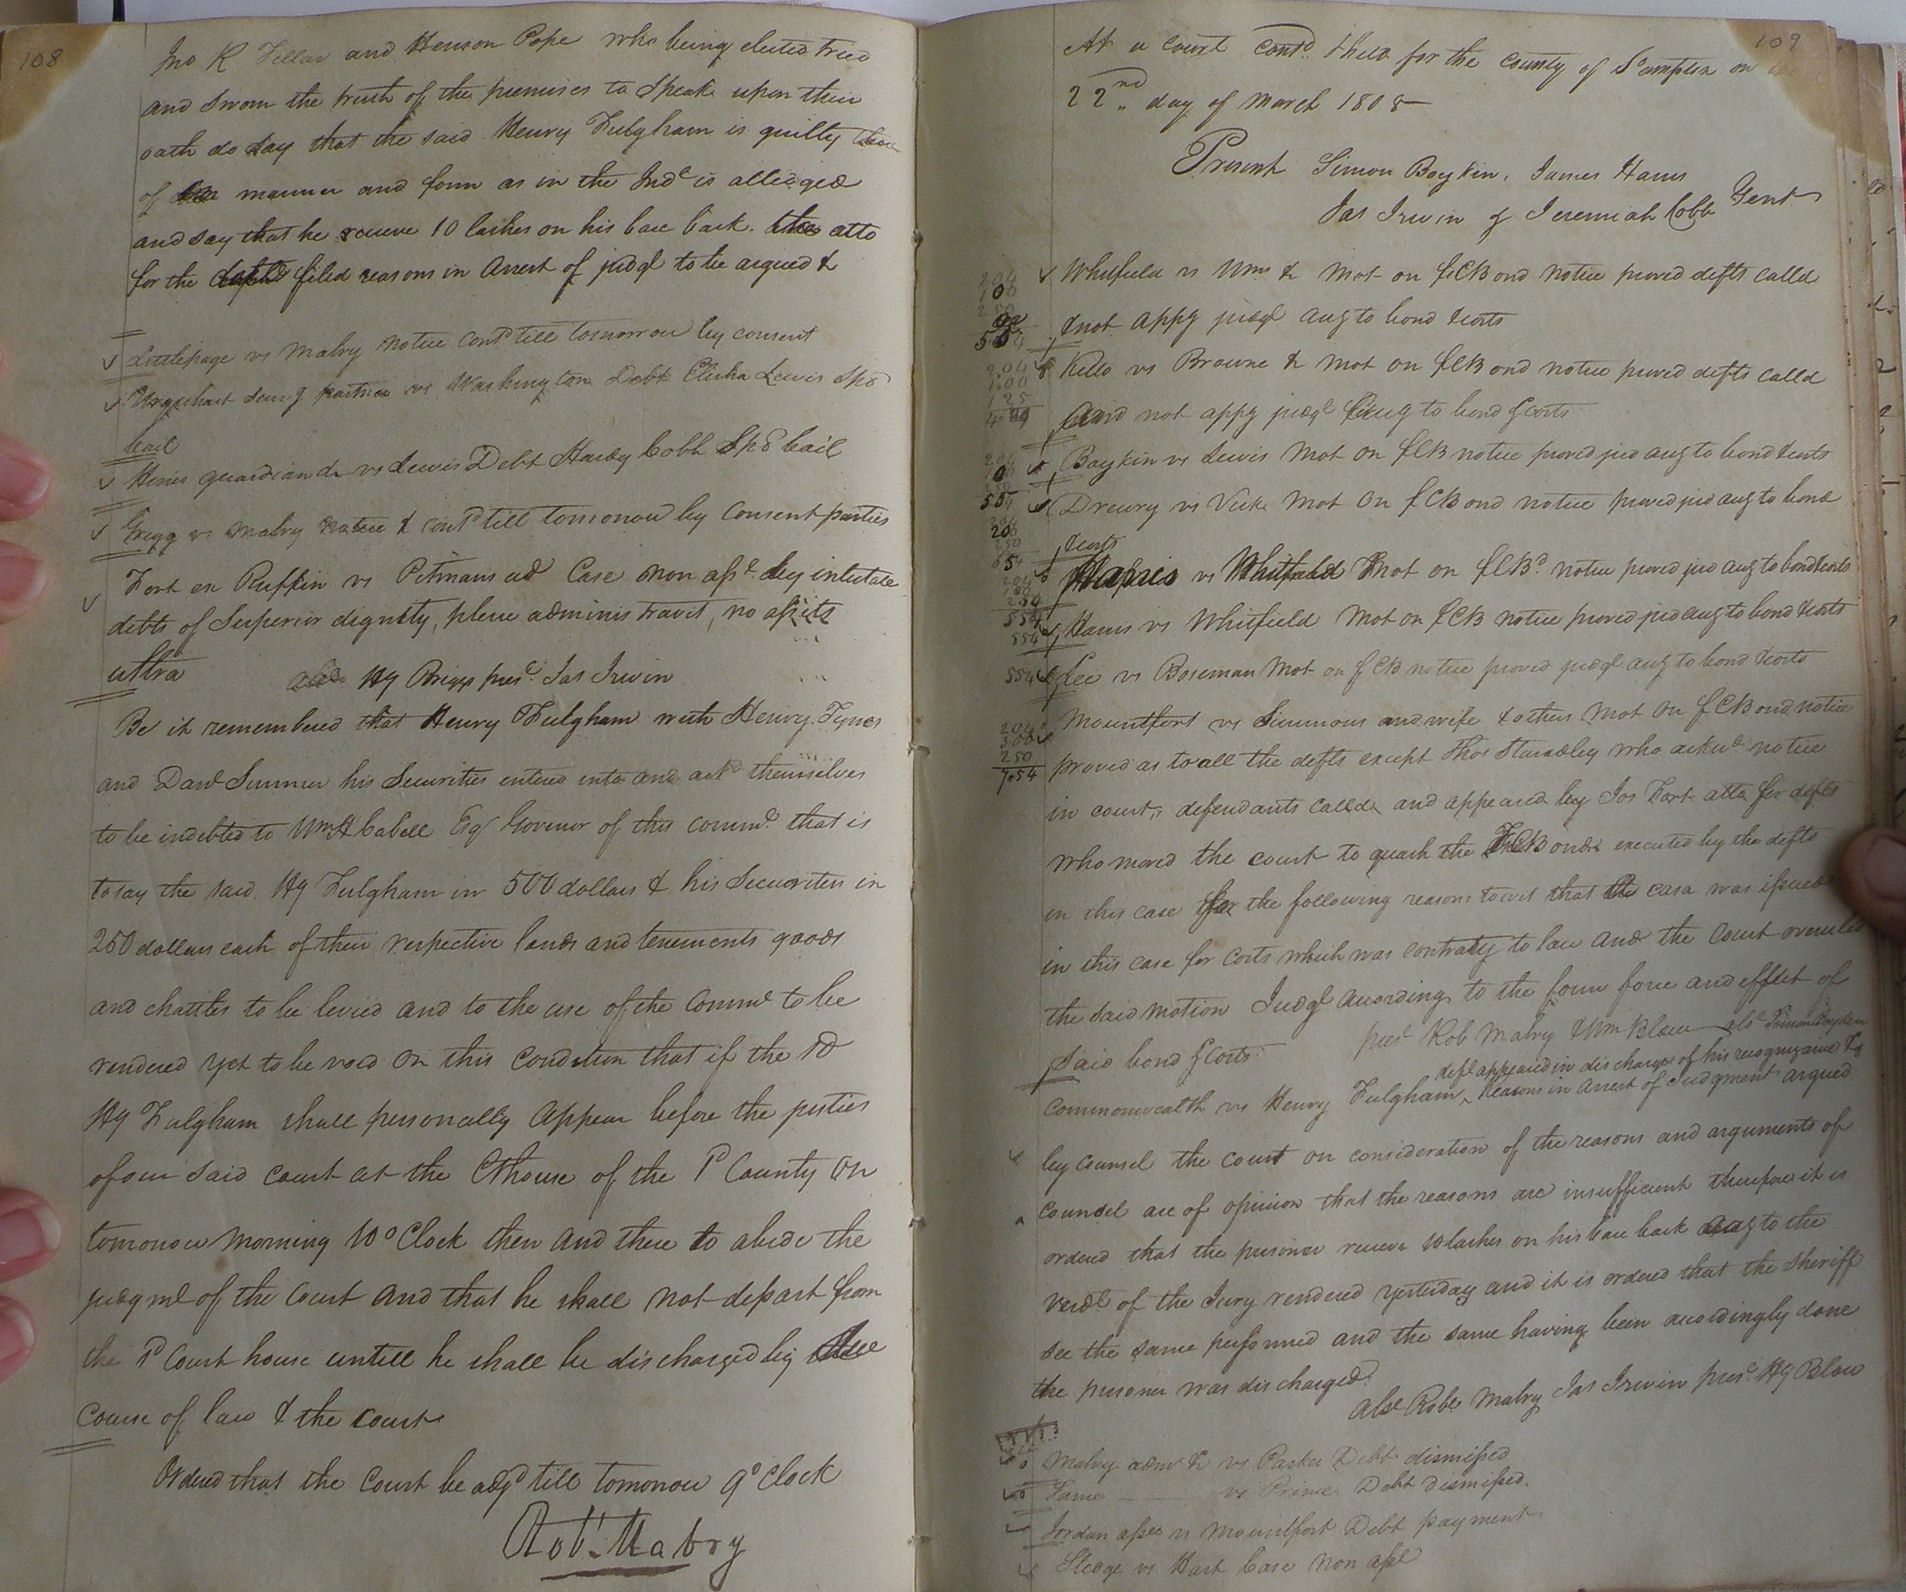 108
Jno R and Henson Pope who being elected tried
and sworn the truth of the premises to speak upon their
oath do say that the said Henry Fulgham is guilty
of manner and form as in the Indt is alledged
and say that he receve 10 lashes on his bare back. the atto
for the filed reasons in Arrest of judgt to be argued &
Littlepage vs Mabry notice contd till tomorrow by consent
Urquhart Senr & partner vs Washington Debt Elisha Lewis Spl
bail
Hines guardian &c vs Lewis Debt Hardy Cobb Spl bail
Grigg vs Mabry notice & contd till tomorrow by Consent parties
Fort ex Ruffin vs Pitmans ad Case non asst by intestate
debts of Superior dignity, plene administravit, no assets
ultra Hy Briggs prest Jas Irwin
Be it remembered that Henry Fulgham with Henry Tynes
and David Simmer his Securities entered into and ackd themselves
to be indebted to Wm H Cabell Esqr Govenor of this commd that is
to say the said Hy Fulgham in 500 dollars & his Securities in
250 dollars each of their respective lands and tenements goods
and chattles to be levied and to the use of the Commd to be
rendered yet to be void on this Condition that if the sd
Hy Fulgham shall personally appear before the justies
of our said court at the Cthouse of the sd County on
tomorrow morning 10 oClock then and there to abide the
judgmt of the Court and that he shall not depart from
the sd Court house untill he shall be discharged by due
course of law & the court
Ordered that the Court be adjd till tomorrow 9 oClock
Robt. Mabry
109
At a court contd & held for the county of Southampton on
22nd day of March 1808
Present Simon Boykin, James Harris
Jas Irwin & Jeremiah Cobb Gent
Whitfield vs Wms & Mot on f C Bond notice proved defts calld
& not appg judgt accg to bond & costs
Kello vs Browne & Mot on f C Bond notice proved defts calld
and not appg judgt accg to bond & costs
Boykin vs Lewis Mot on f C B notice proved jud accg to bond & costs
Drewry vs Vick Mot on f C Bond notice proved jud accg to bond
& costs
Harris vs Whitfield Mot on f C Bd notice proved jud accg to bond & costs
Harris vs Whitfield Mot on f C B notice proved jud accg to bond & costs
Lee vs Boseman Mot on f C B notice proved judgt accg to bond & costs
Mountfort vs Simmons and wife & others Mot on f C Bond notice
proved as to all the defts except Thos Standley who acknd notice
in court, defendants called and appeared by Jas Fort atto for defts
who moved the court to quash the F C Bonds executed by the defts
in this case for the following reasons to wit that the casa was issued
in this case for costs which was contrary to law and the court overuled
the said motion Judgt according to the form force and effect of
said bond & costs prest Rob Mabry & Wm Blow abst Simon Boykin
deft appeared in discharge of his recognizance &
Commonwealth vs Henry Fulgham, Reasons in Arrest of Judgment argued
by counsel the court on consideration of the reasons and arguments of
councel are of opinion that the reasons are insufficient therefore it is
ordered that the prisoner receve 10 lashes on his bare back accg to the
verdt of the Jury rendered yesterday and it is ordered that the Sheriff
see the same performed and the same having been accordingly done
the prisoner was discharged.
abst Robt Mabry Jas Irwin prest Hy Blow
Mabry admr & vs Parker Debt dismissed
Same vs Prime Debt dismissed.
Jordan assee vs Mountfort Debt payment
Sledge vs Hart Case non asst